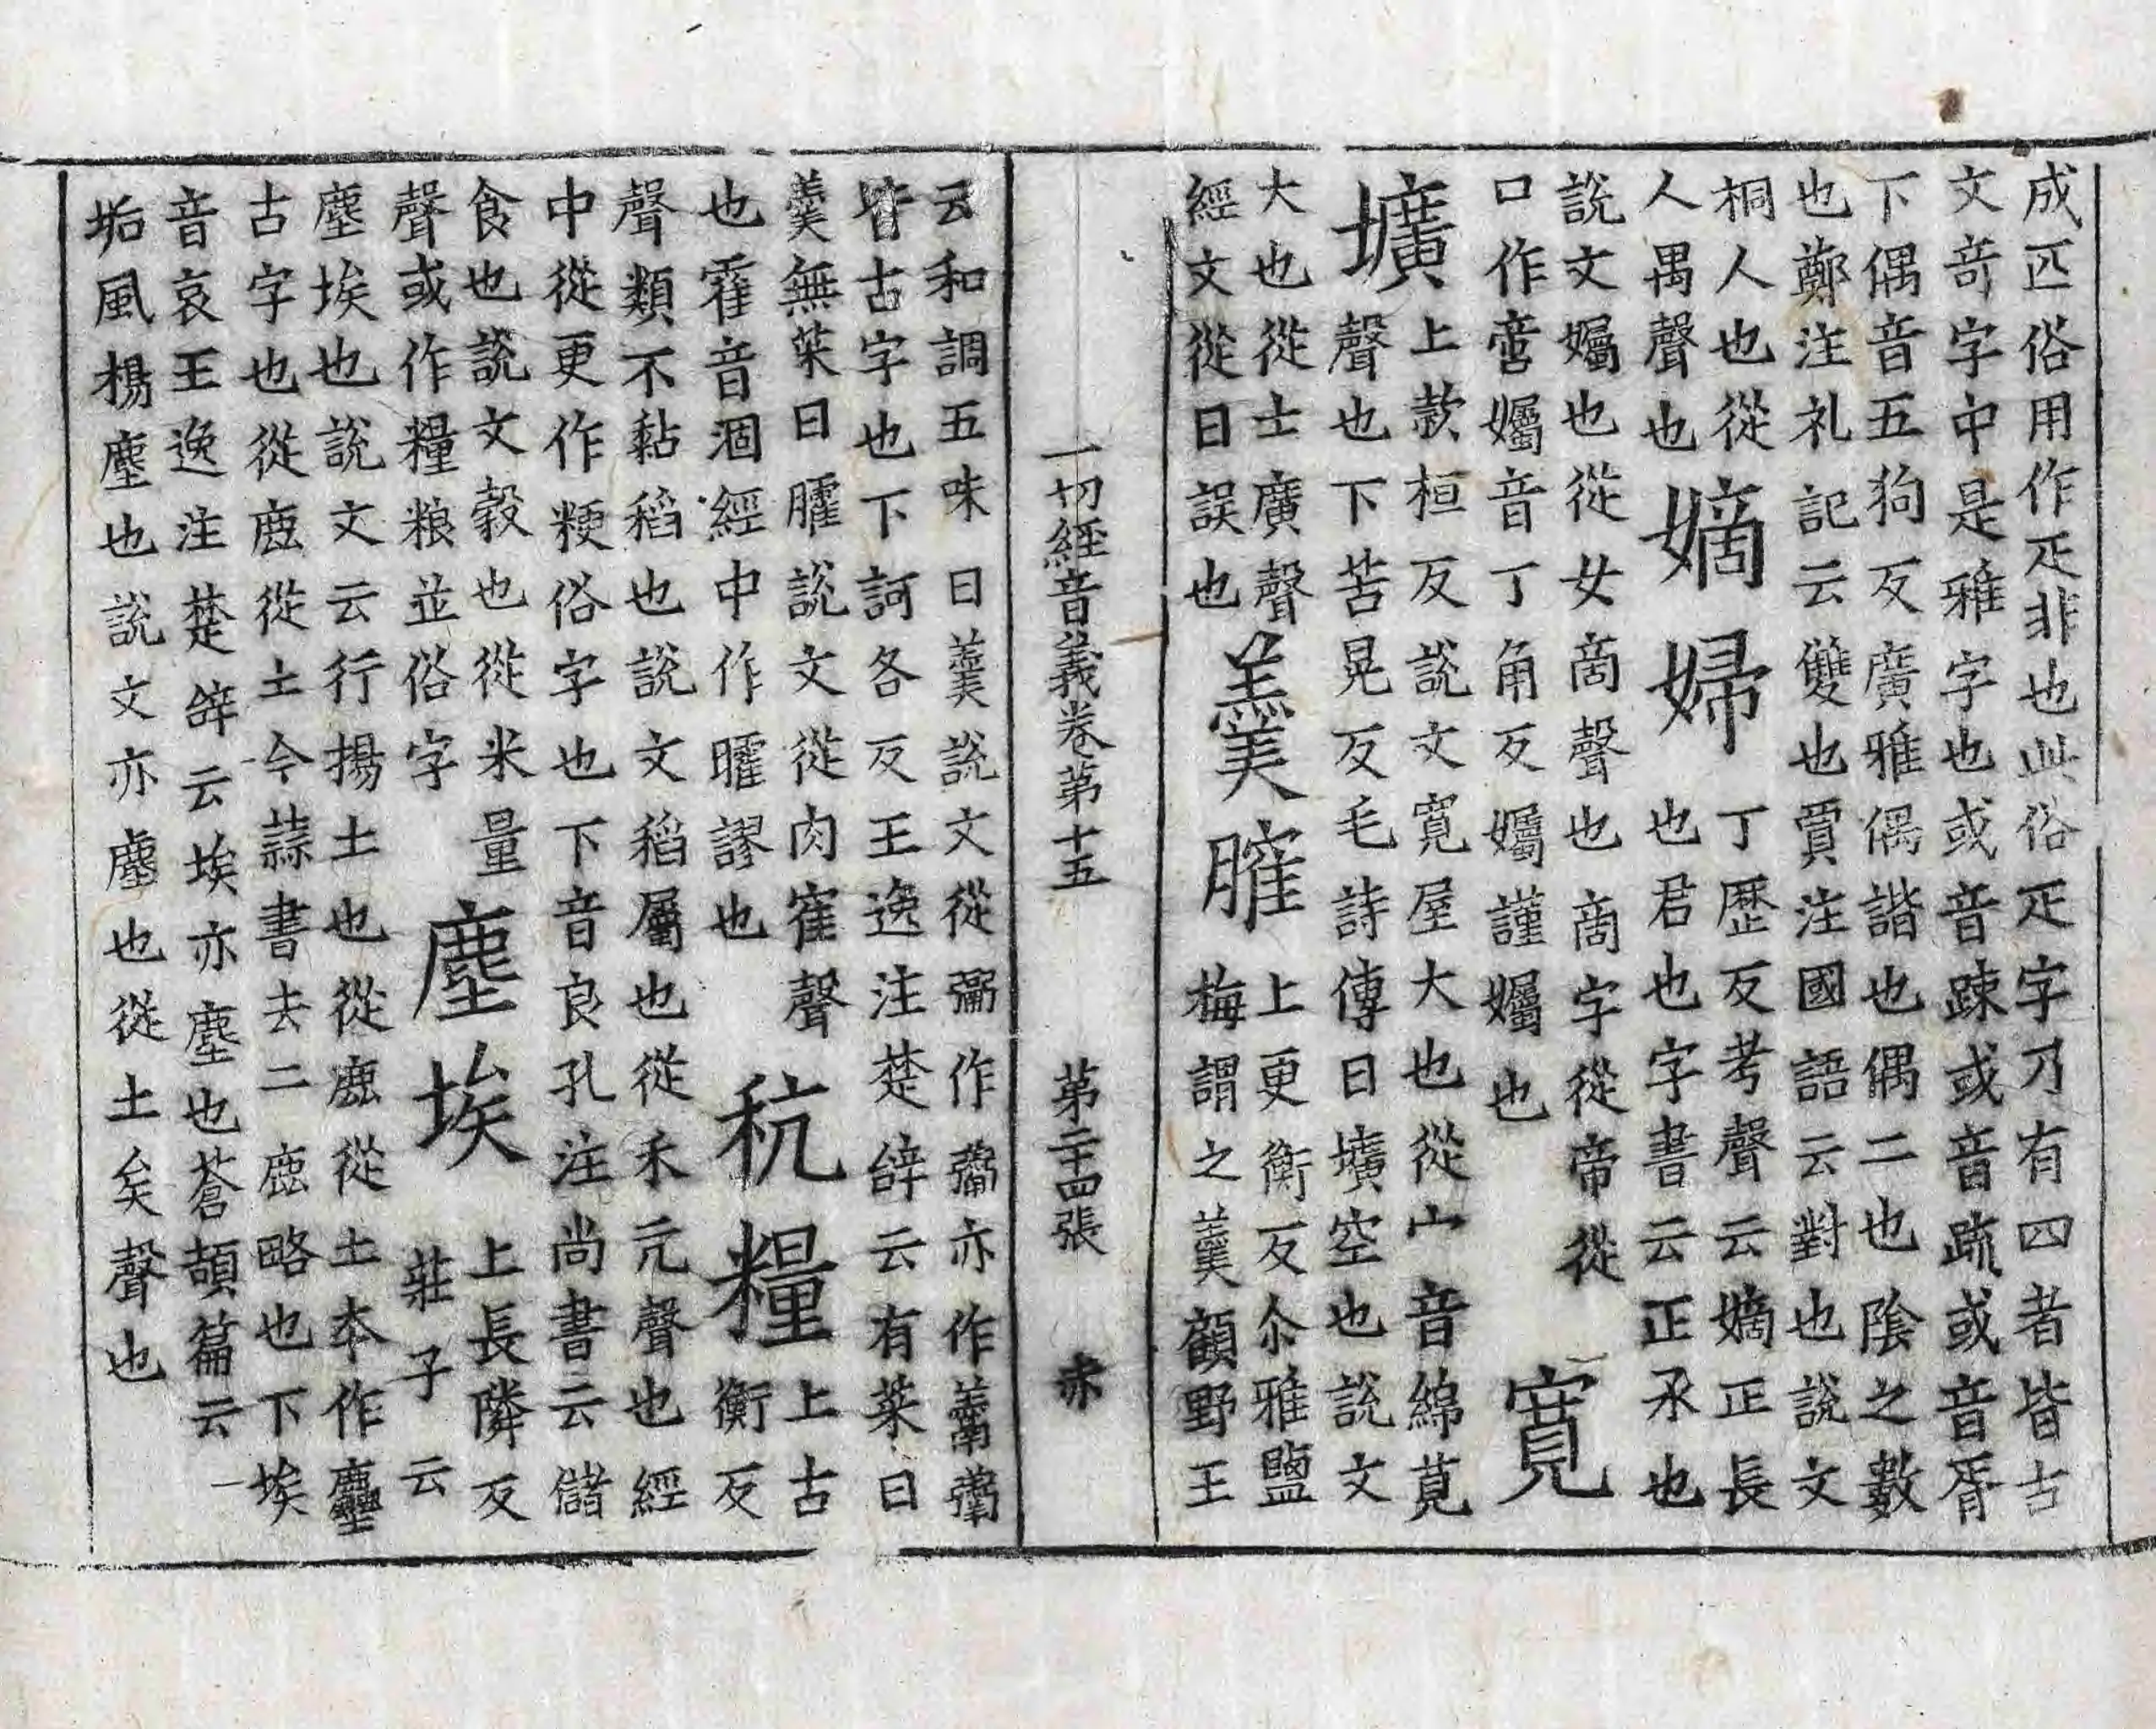 成匹俗用作疋非也此俗疋字乃有四者皆古
文奇字中是雅字也或音踈或音䟽或音胥
下偶音五狗反廣雅偶諧也偶二也陰之數
也鄭注礼記云雙也賈注國語云對也說文
桐人也從
人禺聲也
嫡婦
丁歷反考聲云嫡正長
也君也字書云正承也
說文孎也從女啇聲也啇字從帝從
口作啻孎音丁角反孎謹孎也
寬
壙
上欵桓反說文寬屋大也從宀音綿莧
聲也下苦晃反毛詩傳曰壙空也說文
大也從土廣聲
經文從日誤也
羹臛
上更衡反尒雅鹽
梅謂之羹顧野王
一切經音義卷第十五 第二十四張 赤
云和調五味曰羹說文從䰜作𩱧亦作
皆古字也下訶各反王逸注楚辝云有菜曰
羹無菜曰臛說文從肉隺聲
也霍音涸經中作曤謬也
秔糧
上古
衡反
聲類不黏稻也說文稻屬也從禾亢聲也經
中從更作粳俗字也下音良孔注尚書云儲
食也說文糓也從米量
聲或作糧粮並俗字
塵埃
上長隣反
莊子云
塵埃也說文云行揚土也從鹿從土本作𪋻
古字也從鹿從土今蒜書去二鹿略也下埃
音哀王逸注楚辝云埃亦塵也蒼頡篇云
垢風揚塵也說文亦塵也從土矣聲也